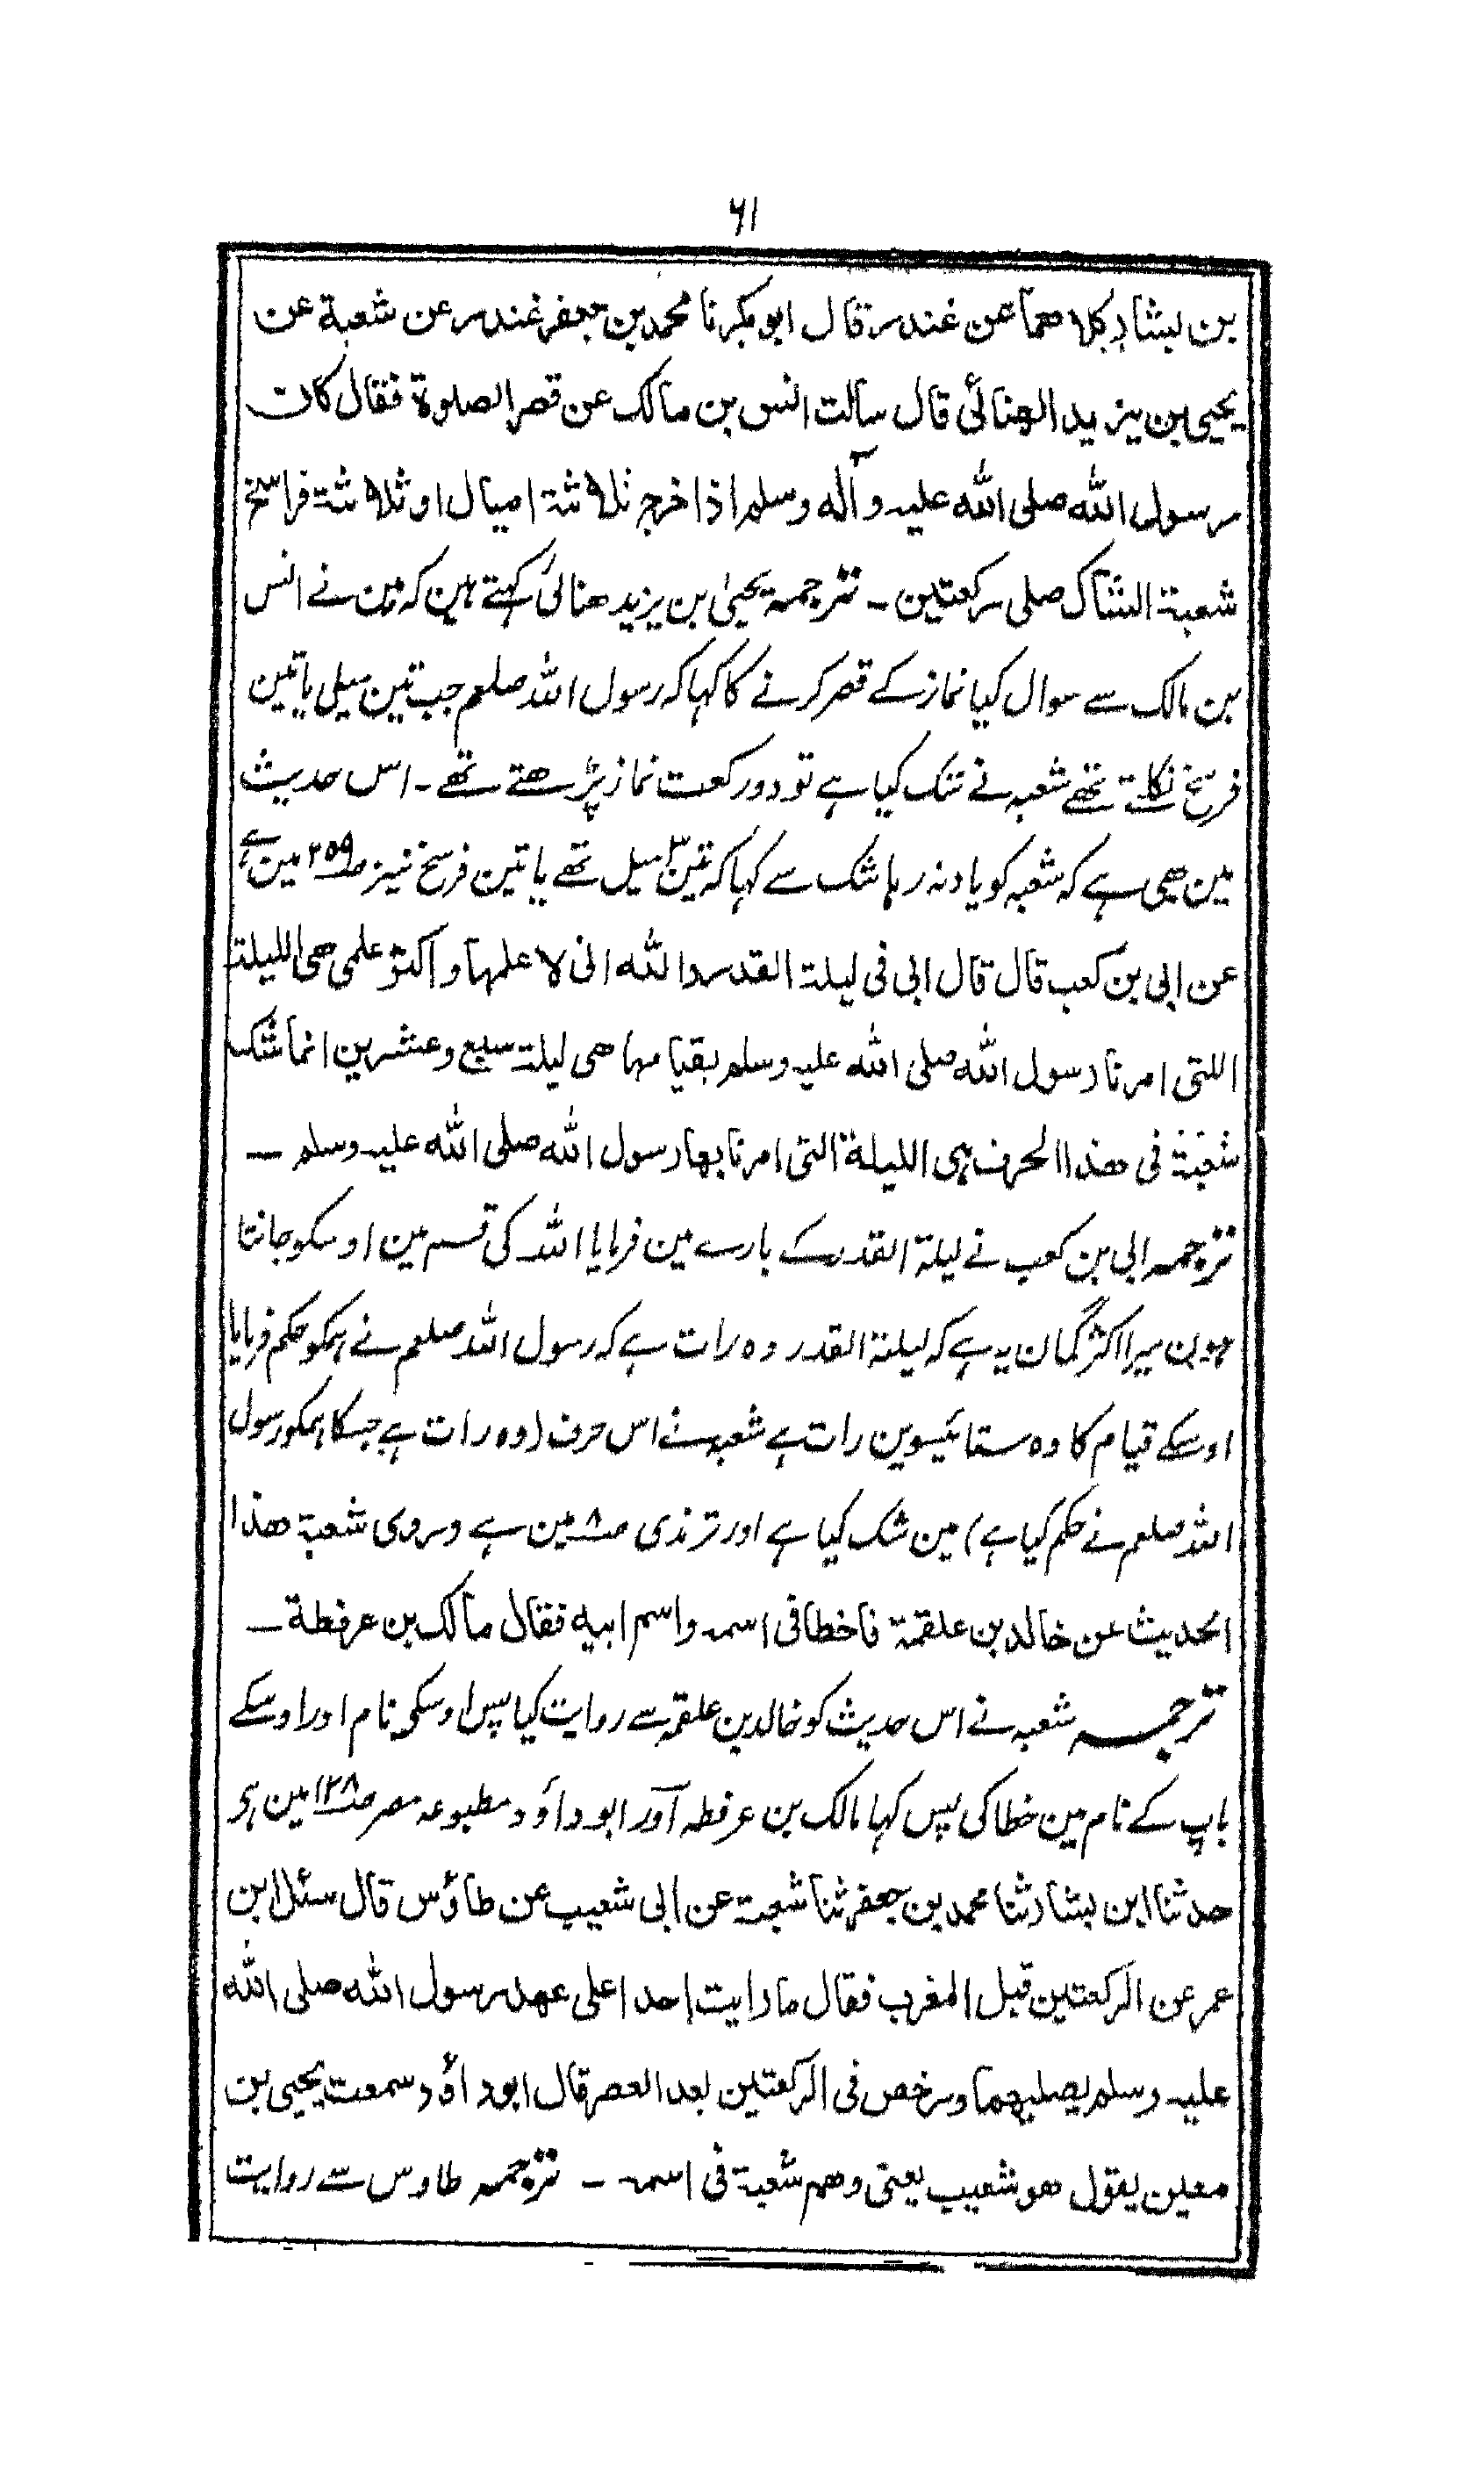 ۶۱
بن بشار کلاهما عن غندر قال ابو بکر نا محمد بن جعفر غندر عن شعبة عن
یحیی بن یزید الهنائی قال سألت انس بن مالک عن قصر الصلوة فقال کان
رسول الله صلی الله علیه وآله وسلم اذا خرج ثلاثة امیال او ثلاثة فراسخ
شعبة الشاک صلی رکعتین ـ ترجمہ یحییٰ بن یزید ھنائی کہتے ہین کہ مین نے انس
بن مالک سے سوال کیا نماز کے قصر کرنے کا کہا کہ رسول اللہ صلعم جب تین میل یا تین
فرسخ نکلتے تھے شعبہ نے شک کیا ہے تو دو رکعت نماز پڑھتے تھے ـ اس حدیث
مین بھی ہے کہ شعبہ کو یاد نہ رہا شک سے کہا کہ تین ۳ میل تھے یا تین فرسخ نیز صـ۲۵۹ مین ہے
عن ابی بن کعب قال قال ابی فی لیلة القدر والله انی لاعلمها واکثر علمی هی اللیلة
اللتی امرنا رسول الله صلی الله علیه وسلم بقیامها هی لیلة سبع وعشرین انما شک
شعبة فی هذا الحرف هی اللیلة التی امرنا بها رسول الله صلی الله علیه وسلم ـ
ترجمہ ابی بن کعب نے لیلۃ القدر کے بارے مین فرمایا اللہ کی قسم مین اوسکو جانتا
ہون میرا اکثر گمان یہ ہے کہ لیلۃ القدر وہ رات ہے کہ رسول اللہ صلعم نے ہمکو حکم فرمایا
اوسکے قیام کا وہ ستائیسوین رات ہے شعبہ نے اس حرف (وہ رات ہے جسکا ہمکو رسول
اللہ صلعم نے حکم کیا ہے) مین شک کیا ہے اور ترمذی صـ۸ مین ہے وروی شعبة هذا
الحدیث عن خالد بن علقمة فاخطا فی اسمه واسم ابیه فقال مالک بن عرفطة ـ
ترجمہ شعبہ نے اس حدیث کو خالد بن علقمہ سے روایت کیا پس اوسکی نام اور اوسکے
باپ کے نام مین خطا کی پس کہا مالک بن عرفطہ آور ابو داؤد مطبوعہ مصر صـ۱۲۸ مین ہی
حدثنا ابن بشار ثنا محمد بن جعفر ثنا شعبة عن ابی شعیب عن طاؤس قال سئل ابن
عمر عن الرکعتین قبل المغرب فقال ما رایت احدا علی عهد رسول الله صلی الله
علیه وسلم یصلیهما ورخص فی الرکعتین بعد العصر قال ابو داؤد سمعت یحیی بن
معین یقول هو شعیب یعنی وهم شعبة فی اسمه ـ ترجمہ طاوس سے روایت